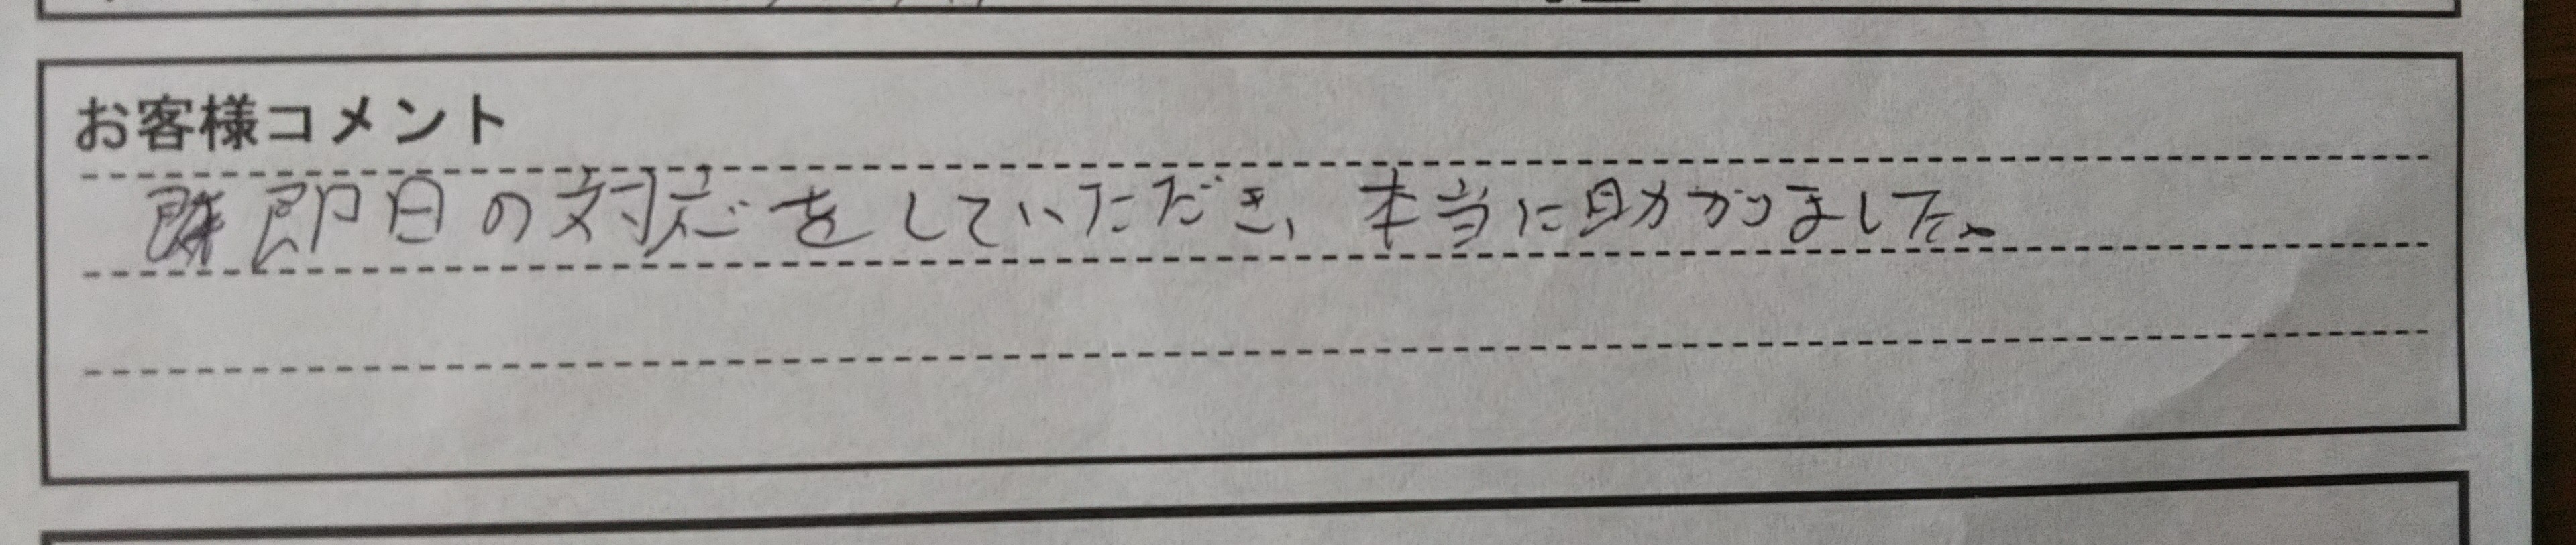 お客様コメント
即日の対応をしていただき、本当に助かりました。